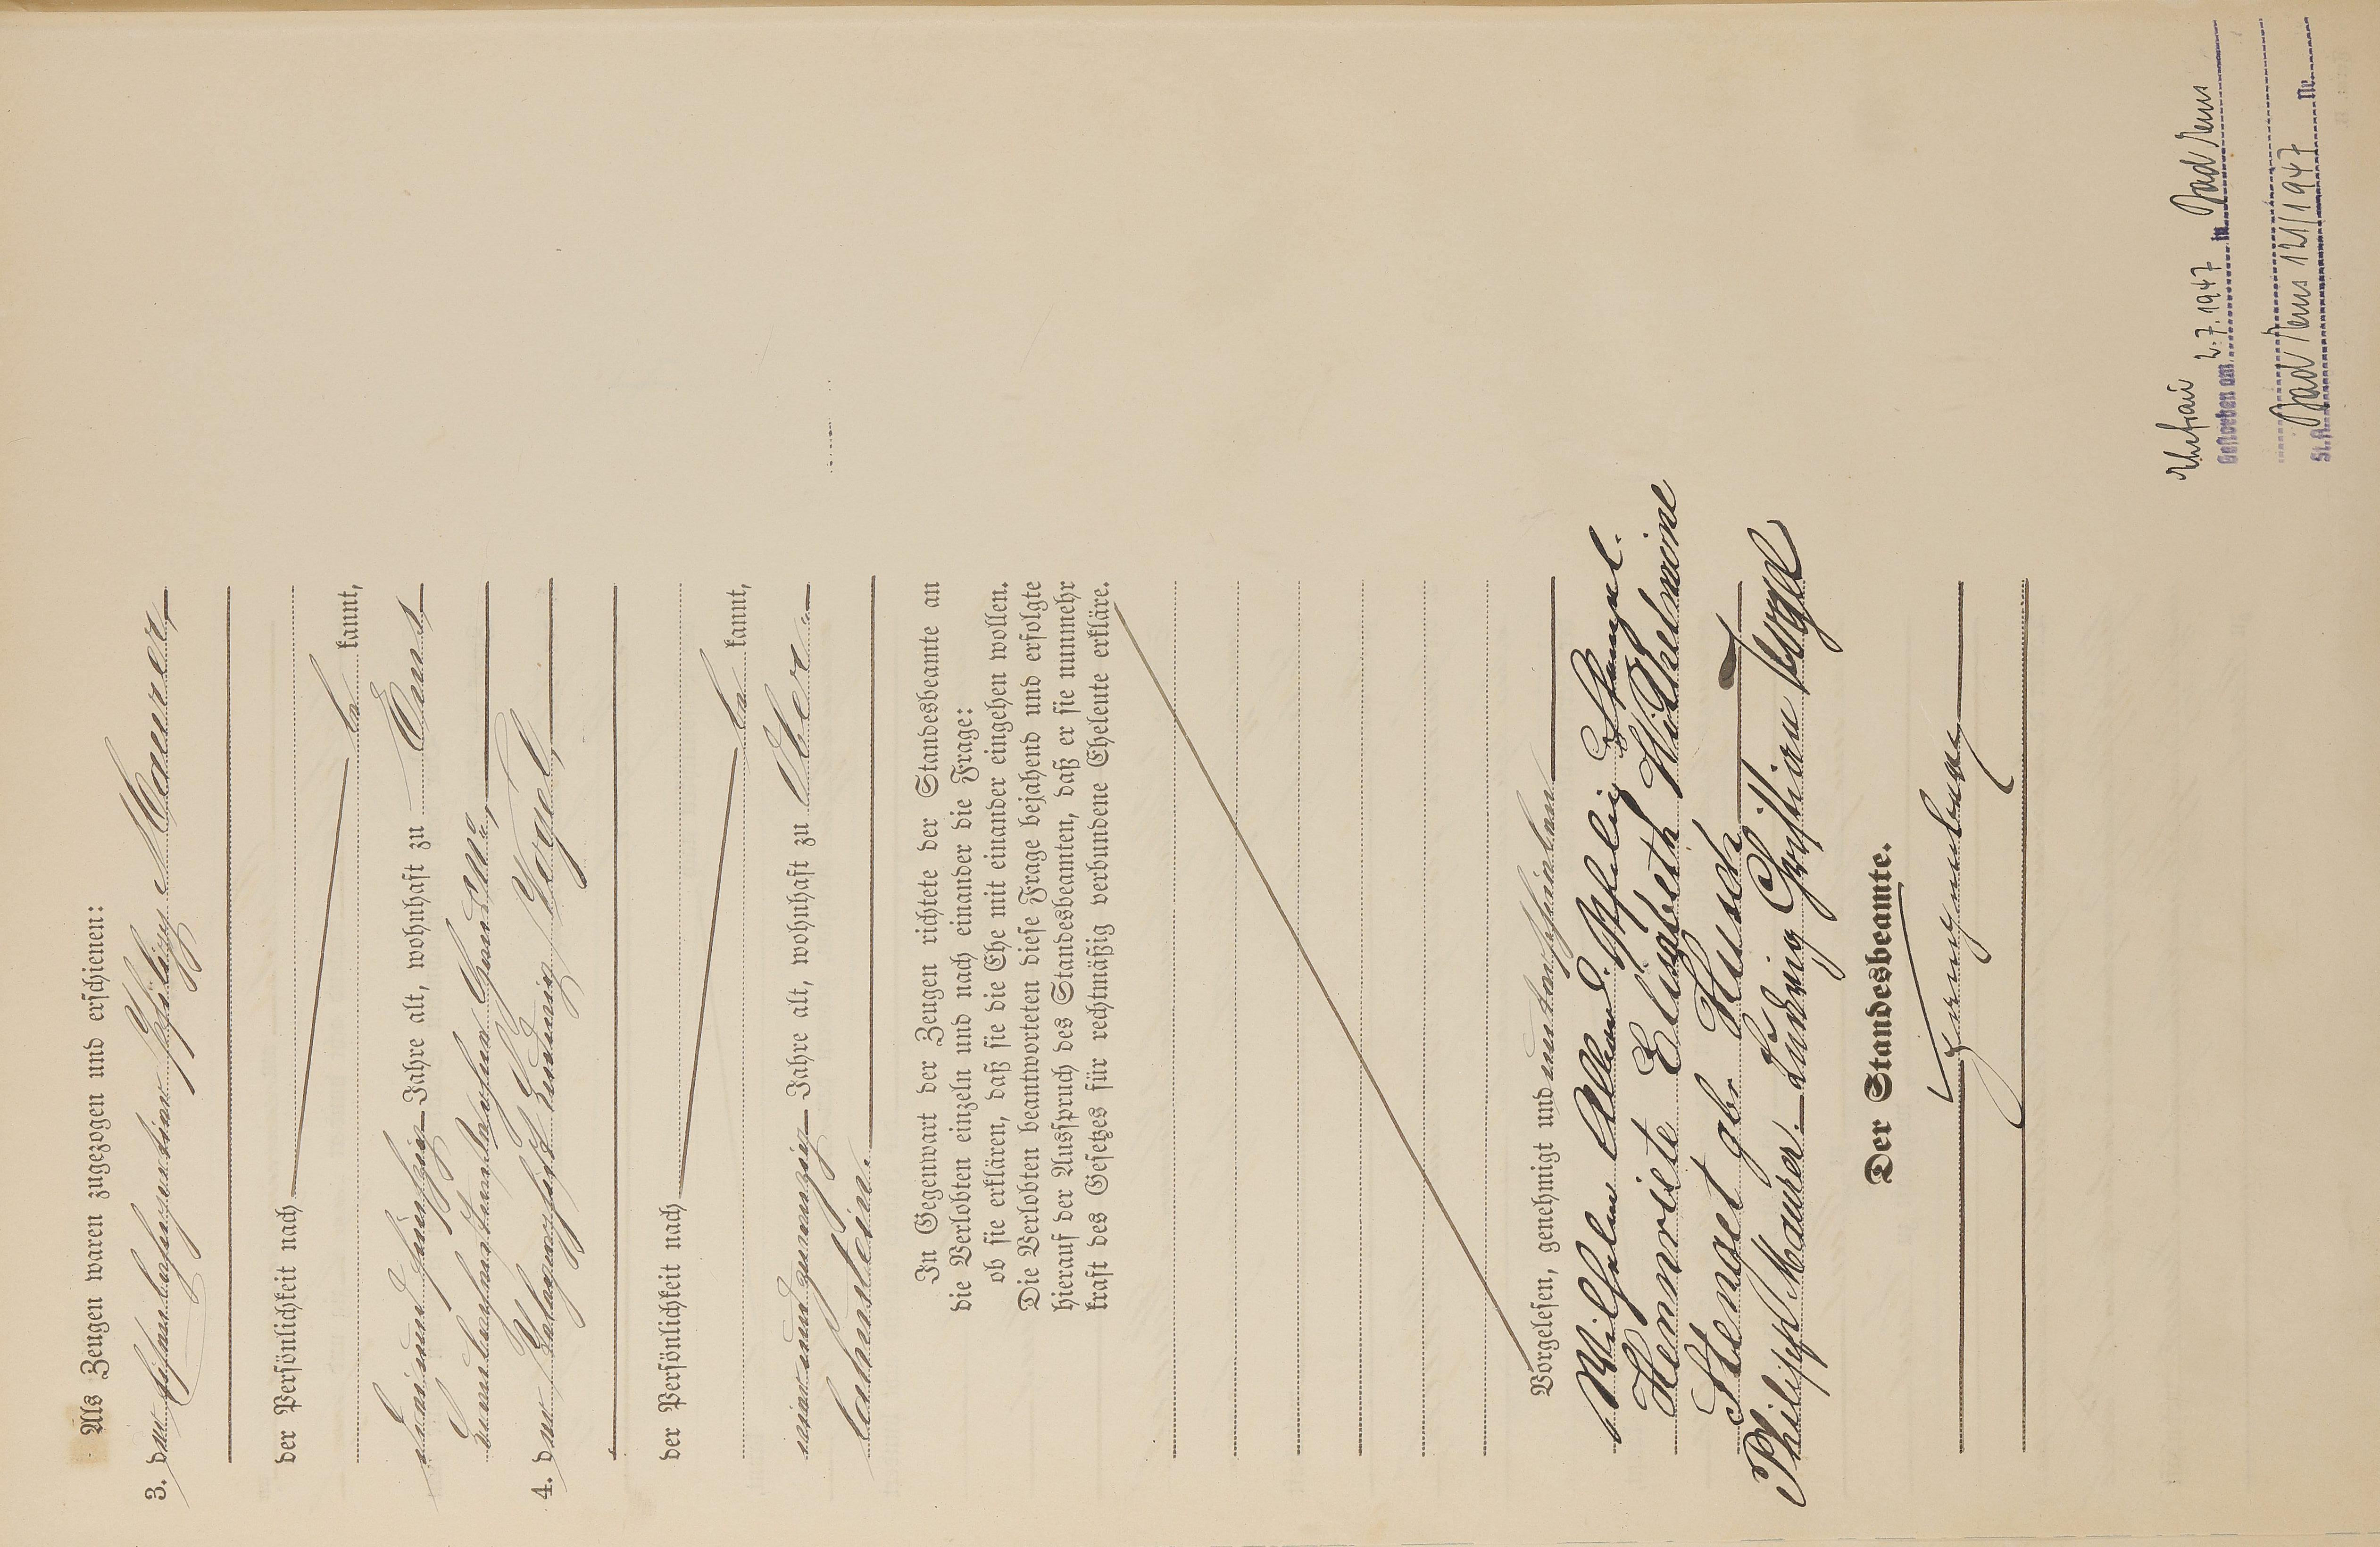 Als Zeugen waren zugezogen und erschienen:
3. der Philipp Maurer,
der Persönlichkeit nach
be kannt,
fünfzig Jahre alt, wohnhaft zu Ems
Ems,
4. der Ludwig Vogel,
der Persönlichkeit nach
be kannt,
einundzwanzig Jahre alt, wohnhaft zu Ober-
lahnstein.
In Gegenwart der Zeugen richtete der Standesbeamte an
die Verlobten einzeln und nach einander die Frage:
ob sie erklären, daß sie die Ehe mit einander eingehen wollen.
Die Verlobten beantworteten diese Frage bejahend und erfolgte
hierauf der Ausspruch des Standesbeamten, daß er sie nunmehr
kraft des Gesetzes für rechtmäßig verbundene Eheleute erkläre.
Vorgelesen, genehmigt und unterschrieben
Wilhelm Philipp Stengel.
Henriete Elisabeth Wilhelmine
Stengel geb. Husch
Philipp Maurer. Ludwig Christian Vogel
Der Standesbeamte.
Ehefrau
Gestorben am 2.7.1947 in Bad Ems
St.A. Bad Ems 121/1947 Nr.